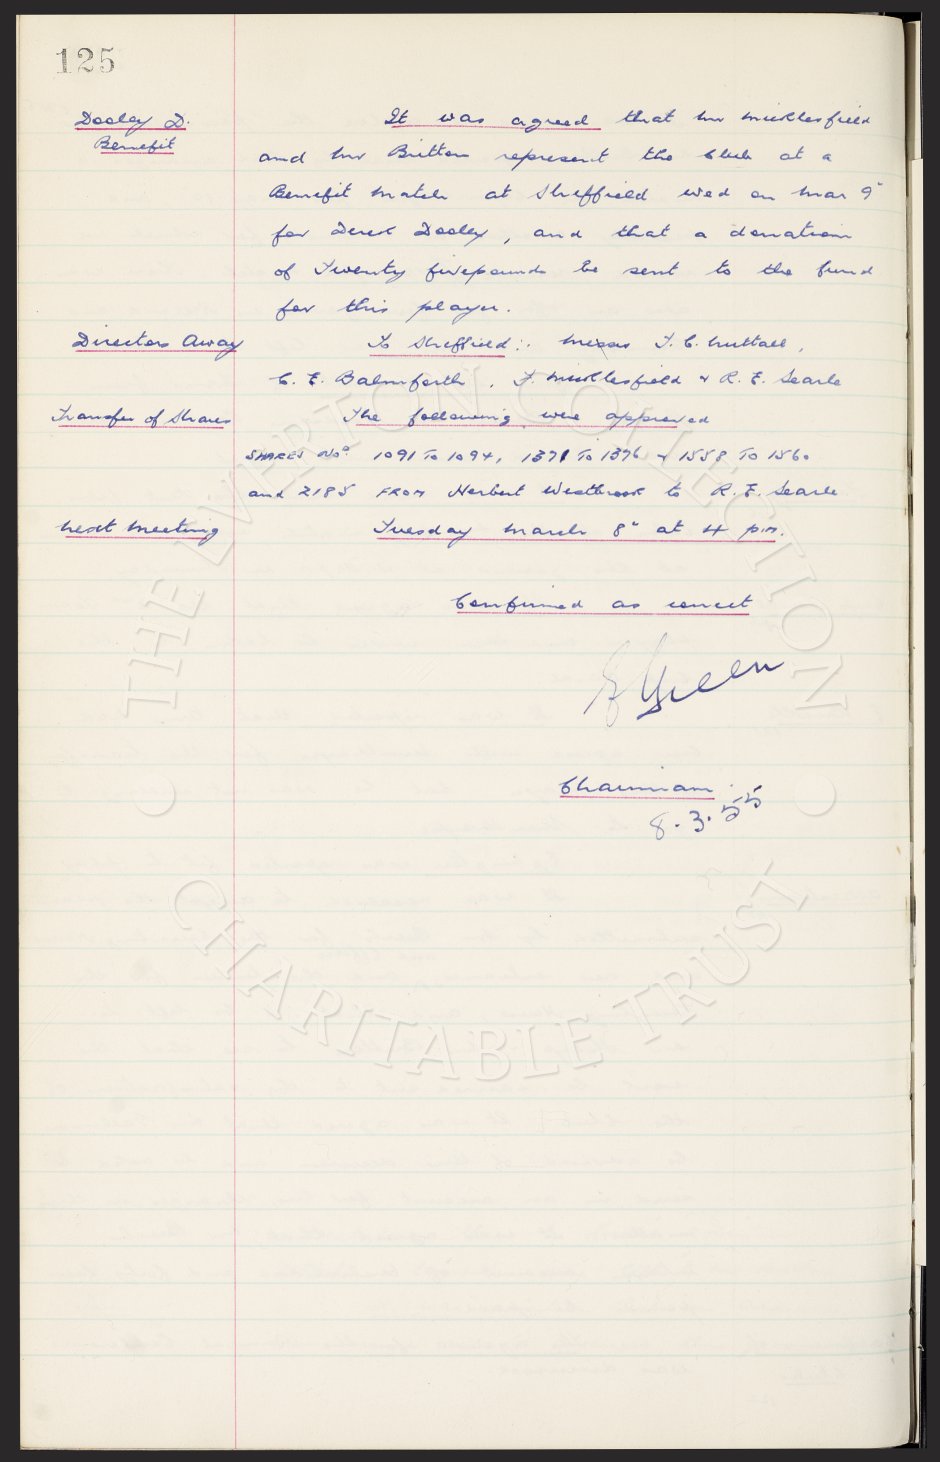 125
Dooley D.
Benefit
It was agreed that Mr Micklesfield
and Mr Britton represent the Club at a
Benefit Match at Sheffield Wed on Mar 9"
for Derek Dooley, and that a donation
of Twenty fivepounds be sent to the fund
for this player.
Directors Away
To Sheffield: Messrs T. C. Nuttall,
C. E. Balmforth, F. Micklesfield & R. E. Searle
Transfer of Shares
The following were approved
SHARES Nos 1091 To 1094, 1371 To 1376 & 1558 TO 1560
and 2185 FROM Herbert Westbrook to R. E. Searle
Next Meeting
Tuesday March 8" at 4 p.m.
Confirmed as correct
E Green
Chairman.
8.3.55
THE EVERTON COLLECTION
CHARITABLE TRUST